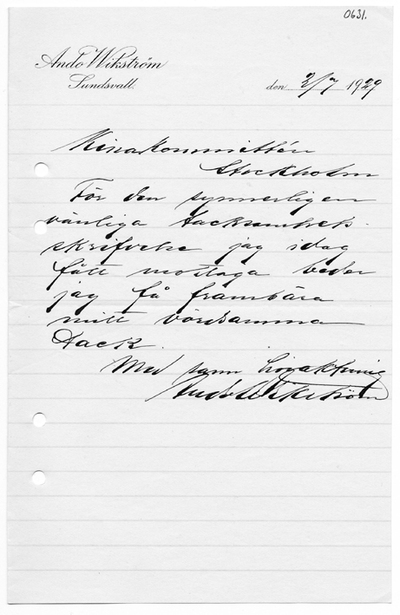 0631.
Ando Wikström
Sundsvall.
den 2/7 1929
Kinakommittén
Stockholm
För den synnerligen
vänliga tacksamhets-
skrifvelse jag idag
fått mottaga beder
jag få frambära
mitt vördsamma
Tack.
Med sann högaktning
Ando Wikström